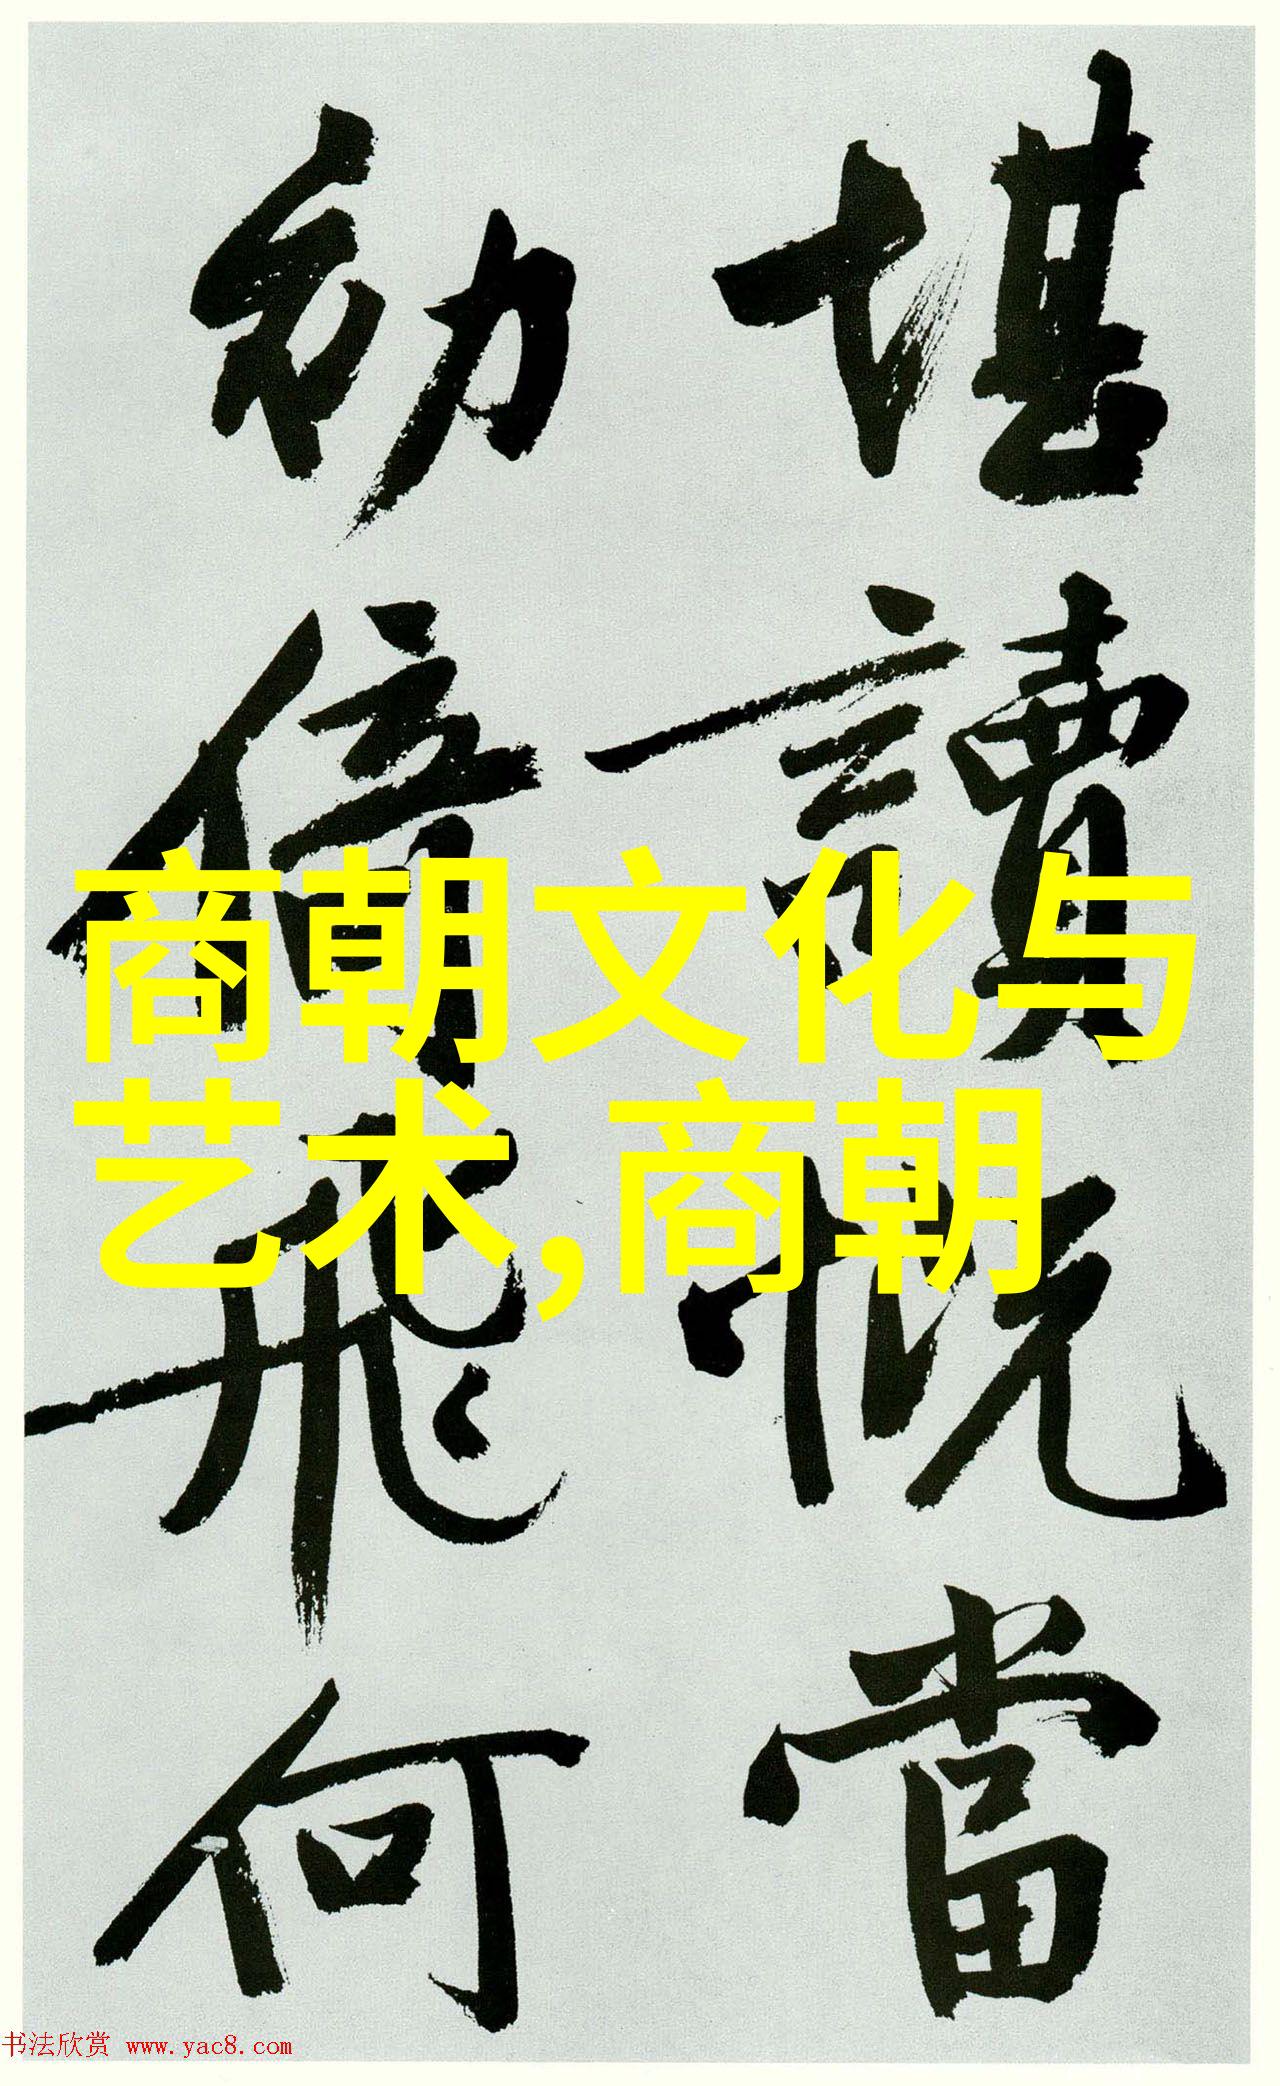 堪讀慨當
幼倍飛何
商朝文化与
艺术,商朝
书法欣赏 www.yac8.com